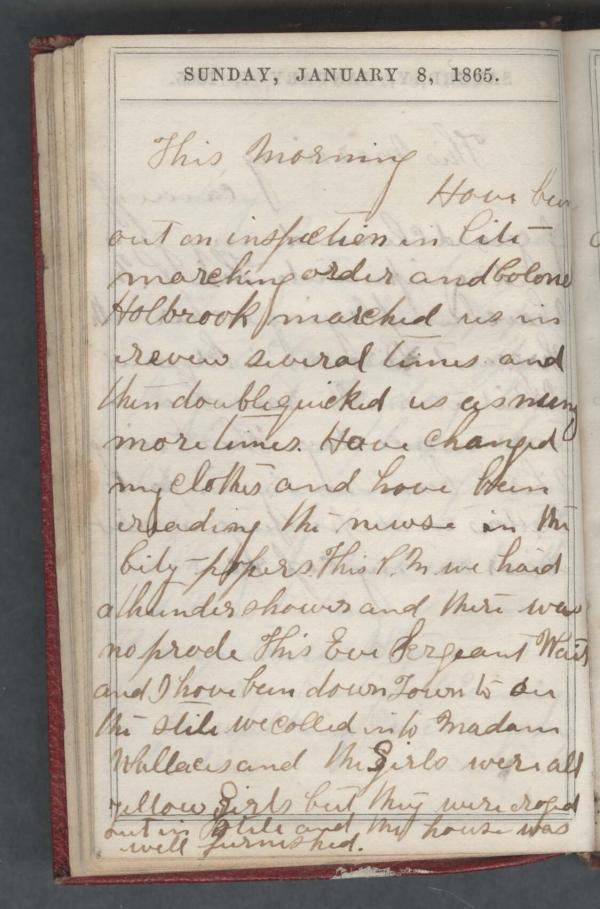 SUNDAY, JANUARY 8, 1865.
This Morning
Have been
out on inspection in lite
marching order and Colone
Holbrook marched us in
revew several times and
then doublequicked us as meny
more times. Have Changed
my clothes and have been
reading the newse in the
City papers This P.M we haid
a thunder shower and there was
no prade This Eve Sergeant Wait
and I have been down Town to see
the stile we colled in to Madam
Wallaces and the Girls were all
yellow Girls but they were droped
out in stile and the house was
well furnished.